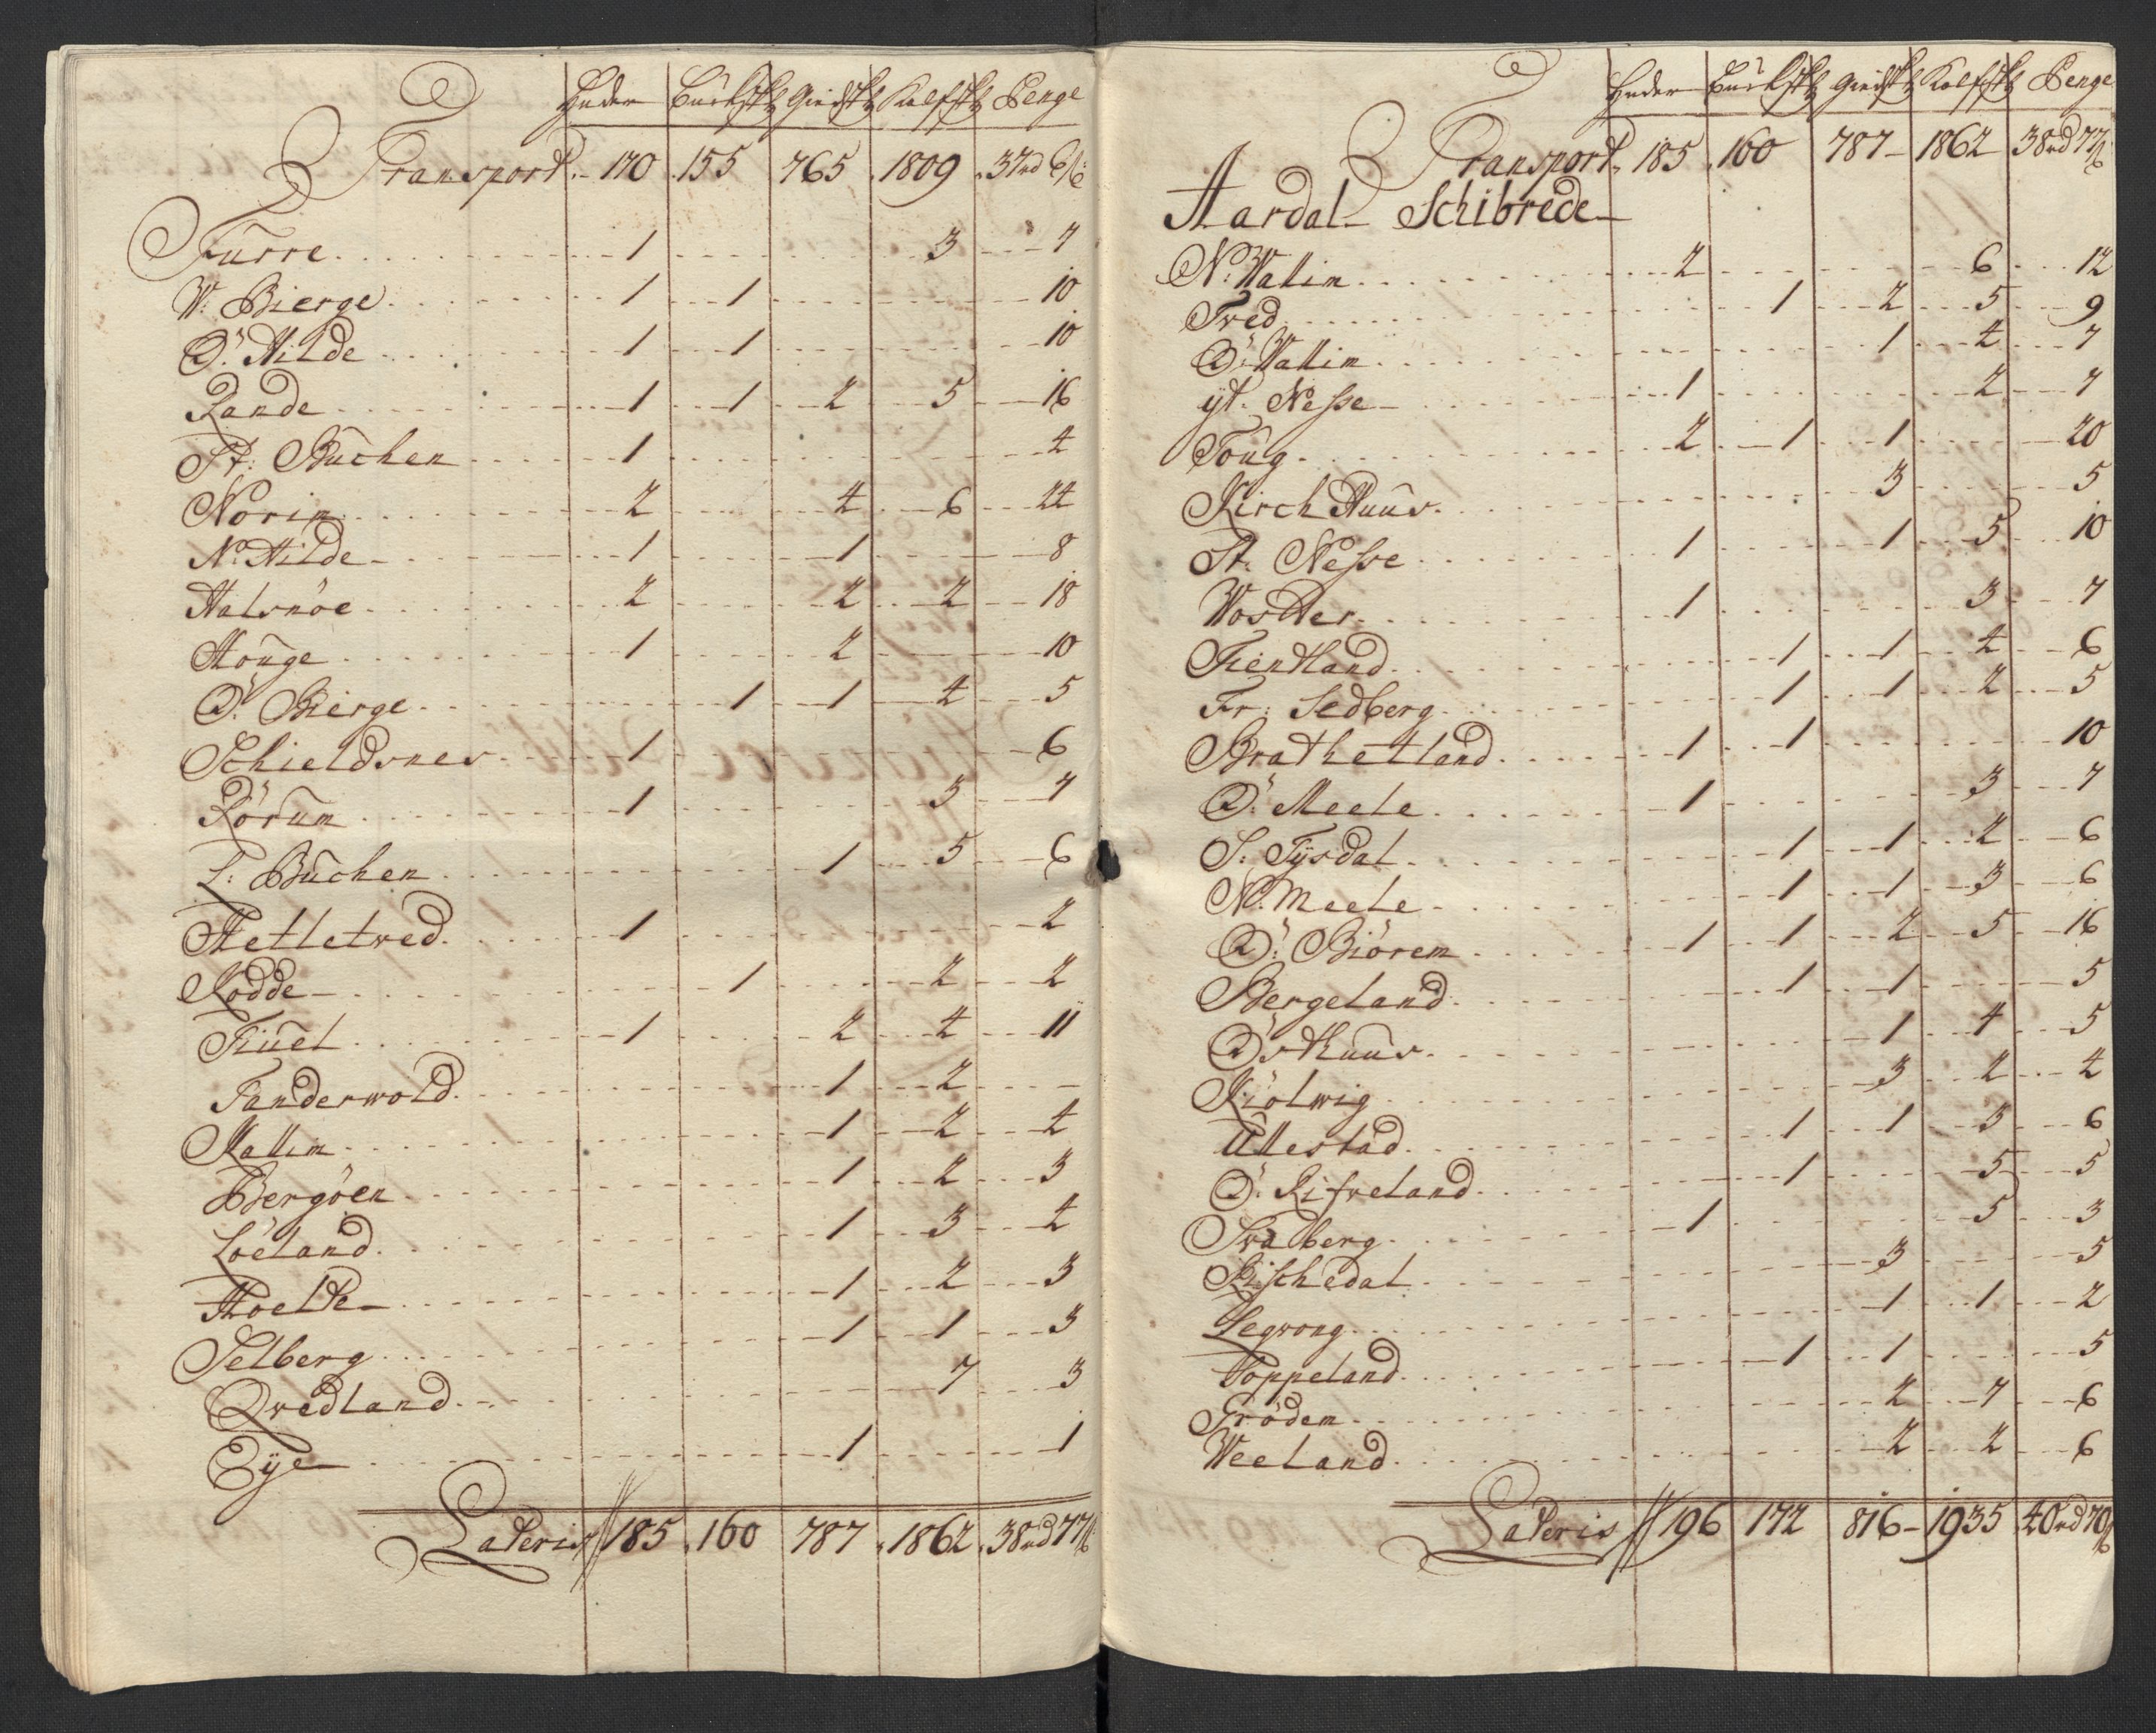 Huder Buckſk Giedſk Kalfſk Penge
Transport. 170 . 155 765 . 1809 . 37rd 6ß
Furre 1 3 7
W. Bierge 1 1 10
Ö. Hilde 1 1 10
Rande 1 1 2 5 16
St: Buchen 1 4
Norim 2 4 6 24
N. Hilde 1 1 8
Halsnöe 2 2 2 18
Houge 1 2 10
Ö. Bierge 1 1 4 5
Schieldsnes 1 6
Rörum 1 3 7
L. Buchen 1 5 6
Helletved 1 2
Rodde 1 2 2
Fiuel 1 2 4 11
Fanderwold 1 2
Mallim 1 2 4
Bergöen 1 2 3
Löeland 1 3 4
Hoette 1 2 3
Selberg 1 1 3
Qvedland 7 3
Eÿe 1 1
Lateris 185 . 160 787 . 1862 . 38rd 77ß
Huder Buckſk Giedſk Kalfſk Penge
Transport. 185 . 160 787 1862 38rd 77ß
Aardal Schibrede
N: Vallim 2 6 12
Tved 1 2 5 9
Ö: Vallim 1 4 7
yt. Neſse 1 2 7
Toug 2 1 1 20
Kirch Huus 3 5
St. Neſse 1 1 5 10
Vostter 1 3 7
Tientland 1 1 4 6
Fr: Sedberg 1 1 2 5
Brathetland 1 1 10
Ö. Meele 1 3 7
S: Tÿsdal 1 1 2 6
N. Meele 1 1 3 6
Ö: Biörem 1 1 2 5 16
Bergeland 1 1 5
Östhuus 1 4 5
Kiölwig 3 2 4
Ullestad 1 1 3 6
Ö. Rifveland 1 5 5
Svaberg 1 5 3
Riſchedal 3 5
Legvong 1 1 2
Toppeland 1 1 5
Trödem 2 7 6
Weeland 2 2 6
Lateris 196 172 816 1935 40rd 70ß